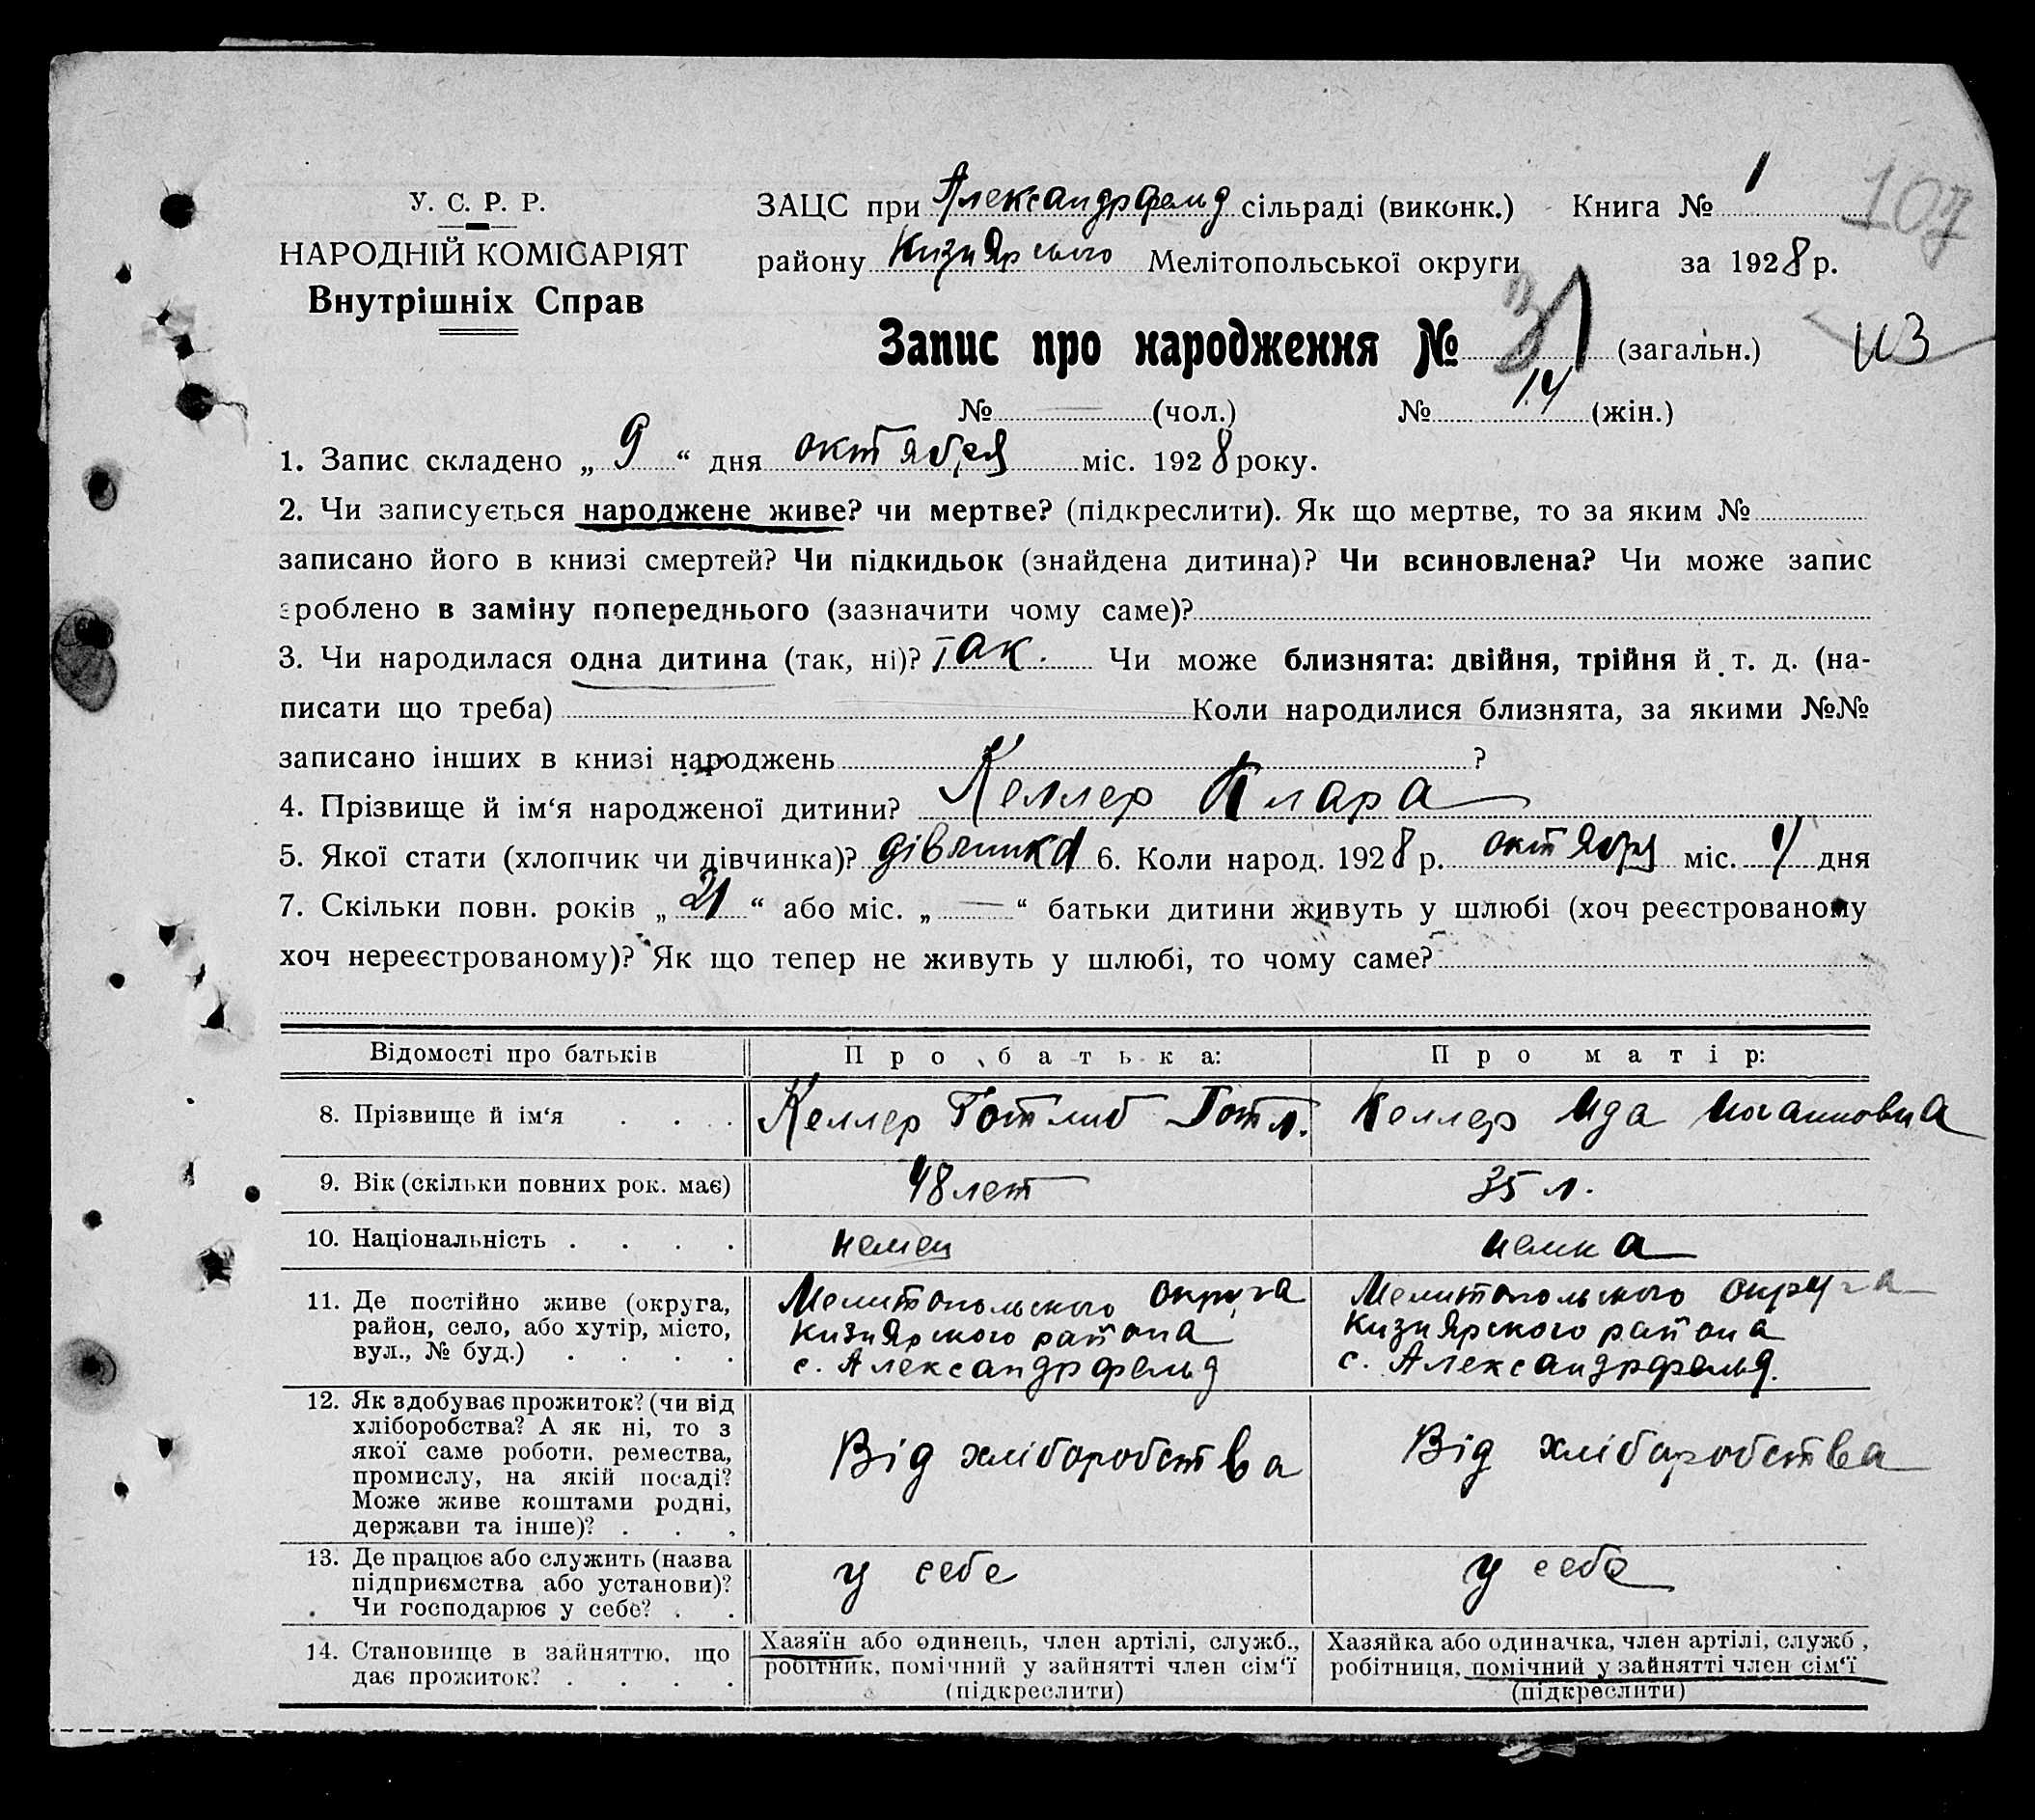 У. С. Р. Р.
НАРОДНІЙ КОМІСАРІЯТ
Внутрішніх Справ
ЗАЦС при Александрфельд сільраді (виконк.) Книга № 1
107
району Кизиярського Мелітопольської округи за 1928 р.
Запис про народження № 31 (загальн.)
113
№ — (чол.) № 14 (жін.)
1. Запис складено „ 9 “ дня октября міс. 1928 року.
2. Чи записується народжене живе? чи мертве? (підкреслити). Як що мертве, то за яким №
записано його в книзі смертей? Чи підкидьок (знайдена дитина)? Чи всиновлена? Чи може запис
зроблено в заміну попереднього (зазначити чому саме)?
3. Чи народилася одна дитина (так, ні)? Так. Чи може близнята: двійня, трійня й т. д. (на-
писати що треба) Коли народилися близнята, за якими №№
записано інших в книзі народжень ?
4. Прізвище й ім‘я народженої дитини? Келлер Клара
5. Якої стати (хлопчик чи дівчинка)? дівчинка 6. Коли народ. 1928 р. октября міс. дня
7. Скільки повн. років „ 21 “ або міс. „ — “ батьки дитини живуть у шлюбі (хоч реєстрованому
хоч нереєстрованому)? Як що тепер не живуть у шлюбі, то чому саме?
Відомості про батьків
Про батька:
Про матір:
8. Прізвище й ім‘я . . .
Келлер Готлиб Готл.
Келлер Ида Иоганновна
9. Вік (скільки повних рок. має)
48 лет
35 л.
10. Національність . . . .
немец
немка
11. Де постійно живе (округа,
район, село, або хутір, місто,
вул., № буд.) . . . .
Мелитопольского округа
Кизиярского района
с. Александрфельд
Мелитопольского округа
Кизиярского района
с. Александрфельд.
12. Як здобуває прожиток? (чи від
хліборобства? А як ні, то з
якої саме роботи, ремества,
промислу, на якій посаді?
Може живе коштами родні,
держави та інше)? . . .
Від хліборобства
Від хліборобства
13. Де працює або служить (назва
підприємства або установи)?
Чи господарює у себе? . .
у себе
у себе
14. Становище в зайняттю, що
дає прожиток? . . . .
Хазяїн або одинець, член артілі, служб.,
робітник, помічний у зайнятті член сім‘ї
(підкреслити)
Хазяйка або одиначка, член артілі, служб ,
робітниця, помічний у зайнятті член сім‘ї
(підкреслити)